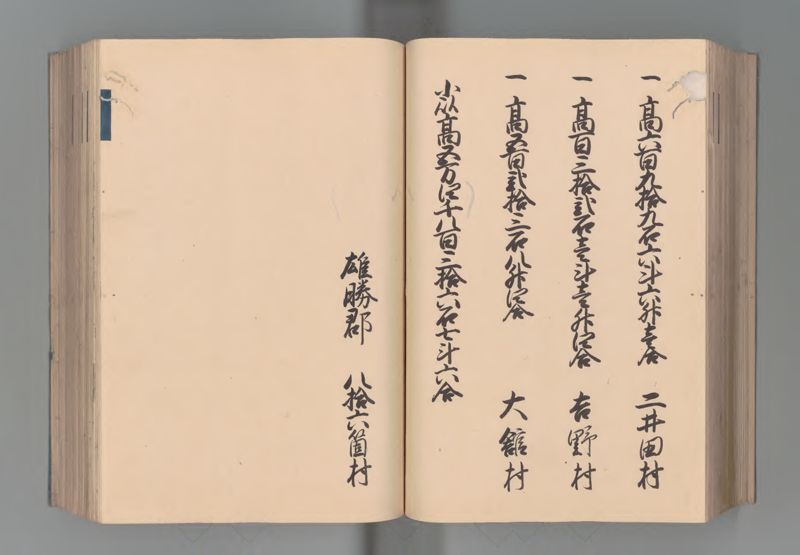 一 高六百九拾九石六斗六升壱合 二井田村
一 高百三拾弐石壱斗壱升四合 吉野村
一 高五百弐拾三石八升四合 大舘村
小以高五万四千八百三拾六石七斗六合
雄勝郡 八拾六箇村